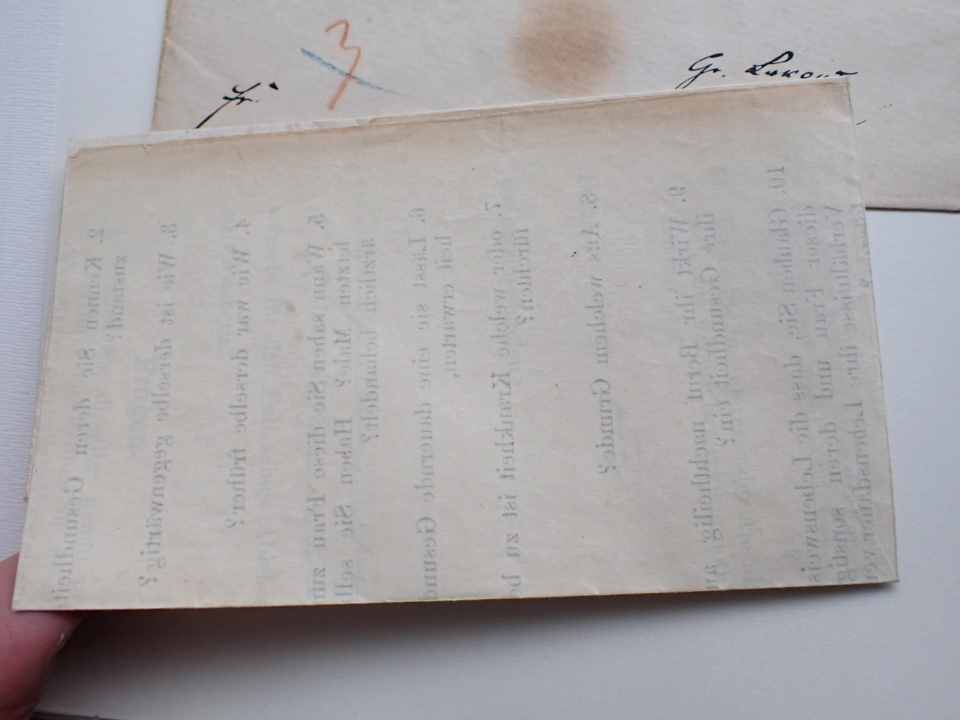 3
Gr.
2. Kennen Sie deren Gesundheit
zustand?
3. Wie ist derselbe gegenwärtig?
4. Wie war derselbe früher?
5. Wann sahen Sie diese Frau zum
letzten Male? Haben Sie sel
ärztlich behandelt?
6. Lässt sie eine dauernde Gesund
heit erwarten,
7. oder welche Krankheit ist zu be
fürchten?
8. Aus welchem Grunde?
9. Wirkt ihr Beruf nachtheilig au
ihre Gesundheit ein?
10. Glauben Sie, dass die Lebensweis
dieser Frau und deren sonstig
Verhältnisse ihre Lebensdauer